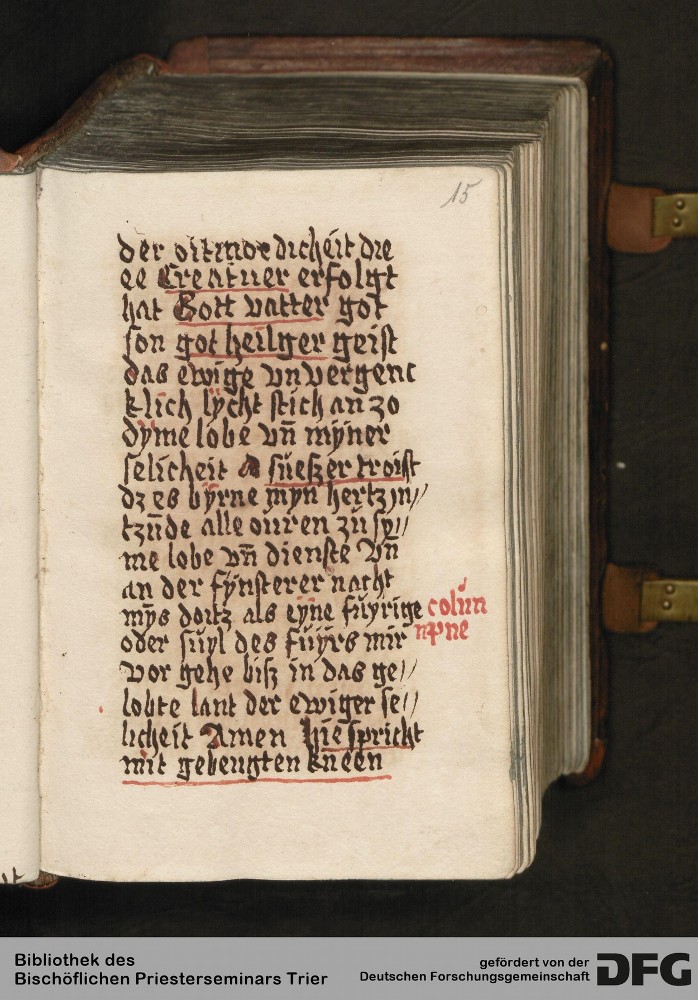 15
der oitmoedicheit die
ee Creatuer erfolgt
hat Gott vatter got
son got heilger geist
das ewige vnvergenc
klich lycht stich an zo
dyme lobe vn̄ mÿner
selicheit O sueßer troist
dz es byrne myn hertz in//
tzūde alle ouren zů sy//
me lobe vn̄ dienste Vn̄
an der fÿnsterer nacht
mÿs doitz als eÿne fůyrige colūn
npne
oder sůyl des fůyrs mir
vor gehe biß in das ge//
lobte lant der ewiger se//
licheit Amen Hie spricht
mit gebeugten kneen
Bibliothek des
Bischöflichen Priesterseminars Trier
gefördert von der
Deutschen Forschungsgemeinschaft DFG